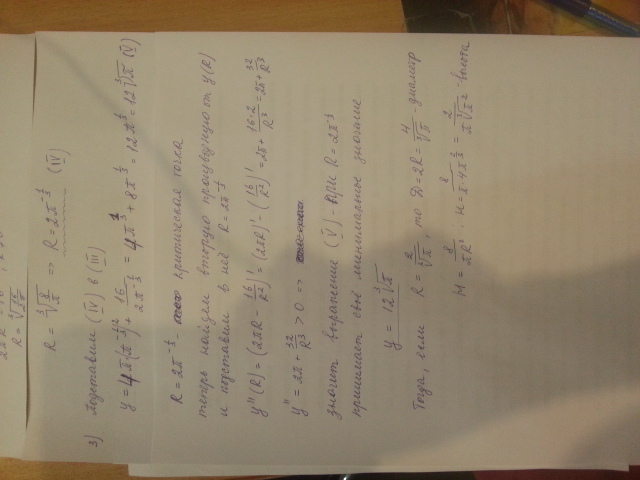 2πR
R = ∛(8/π)
R = ∛(8/π) => R = 2π^(-1/3) (IV)
3) Подставим (IV) в (III)
y = 4π(π^(-1/3))² + 16/(2π^(-1/3)) = 4π^(1/3) + 8π^(1/3) = 12π^(1/3) = 12∛π (V)
R = 2π^(-1/3) критическая точка
теперь найдем вторую производную от y(R)
и подставим в неё R = 2π^(-1/3)
y''(R) = (2πR - 16/R²)' = (2πR)' - (16/R²)' = 2π + 16·2/R³ = 2π + 32/R³
y'' = 2π + 32/R³ > 0 =>
значит выражение (V) - при R = 2π^(-1/3)
принимает своё минимальное значение
y = 12∛π
Тогда, если R = 2/∛π, то D = 2R = 4/∛π - диаметр
H = 8/πR² ; H = 8/(π·4π^(-2/3)) = 2/ - высота